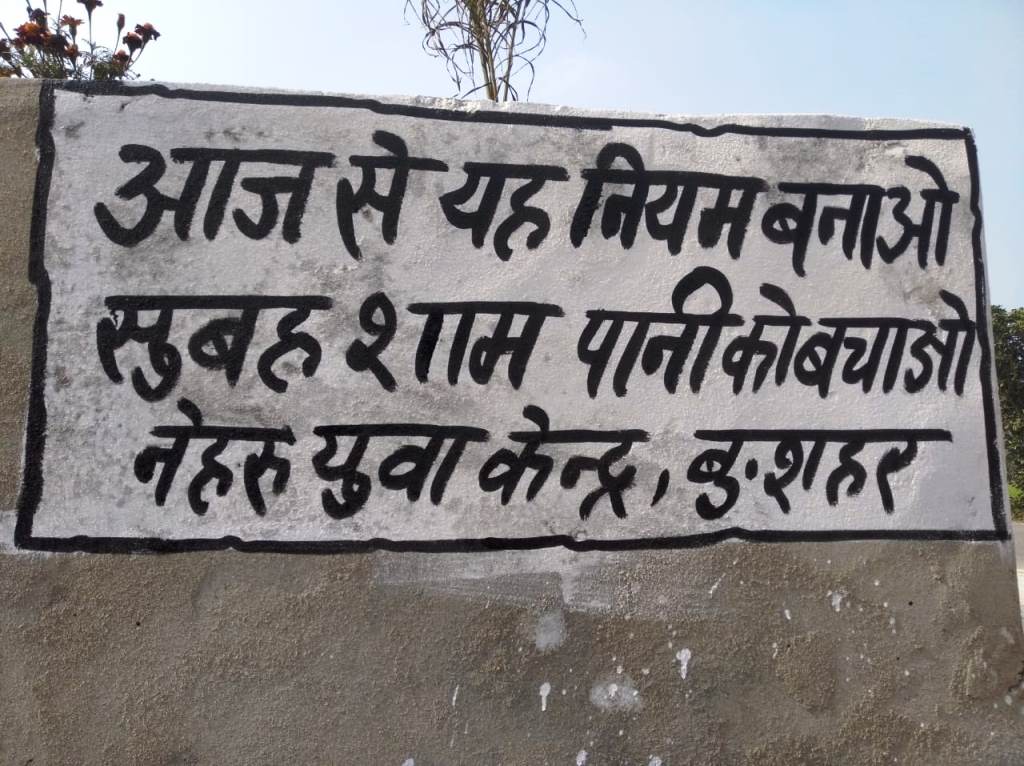 आज से यह नियम बनाओ
सुबह शाम पानी को बचाओ
नेहरु युवा केन्द्र, बु.शहर